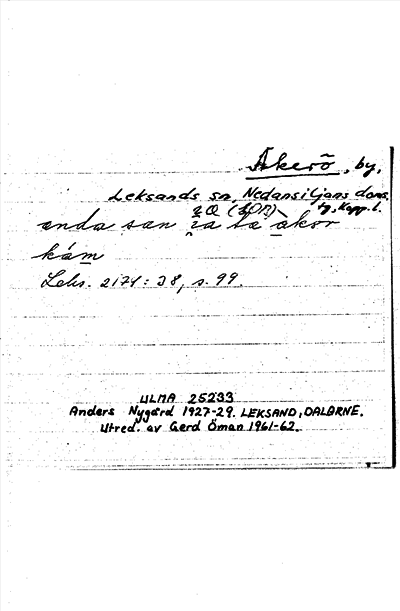 Åkerö, by,
Leksands sn, Nedansiljans doms.
tg, Kopp. l.
enda san ta åkor
kám
Leks. 2174:38, s. 99.
ULMA 25233
Anders Nygård 1927-29. LEKSAND, DALARNE.
Utred. av Gerd Öman 1961-62.